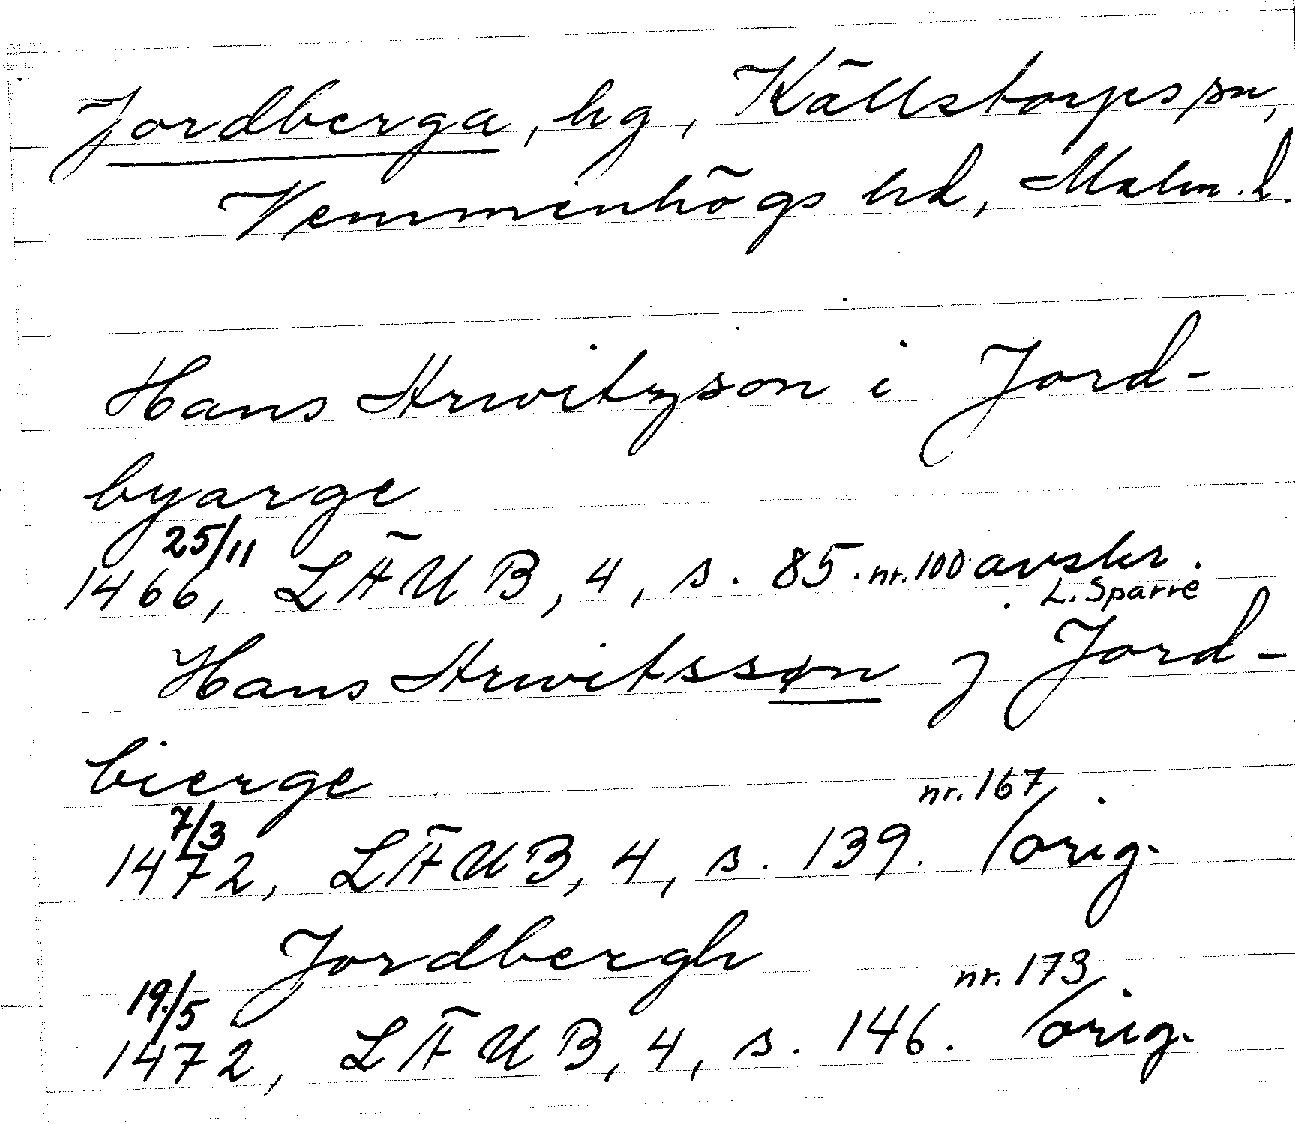 Jordberga, hg, Källstorps sn,
Vemmenhögs hd, Malm. l.
Hans Arwitzson i Jord-
byarge
25/11
1466, LÄUB, 4, s. 85. nr. 100 avskr.
L. Sparre
Hans Arwitssøn j Jord-
bierge
7/3 nr. 167
1472, LÄUB, 4, s. 139. /orig.
Jordbergh
19/5 nr. 173
1472, LÄUB, 4, s. 146. /orig.